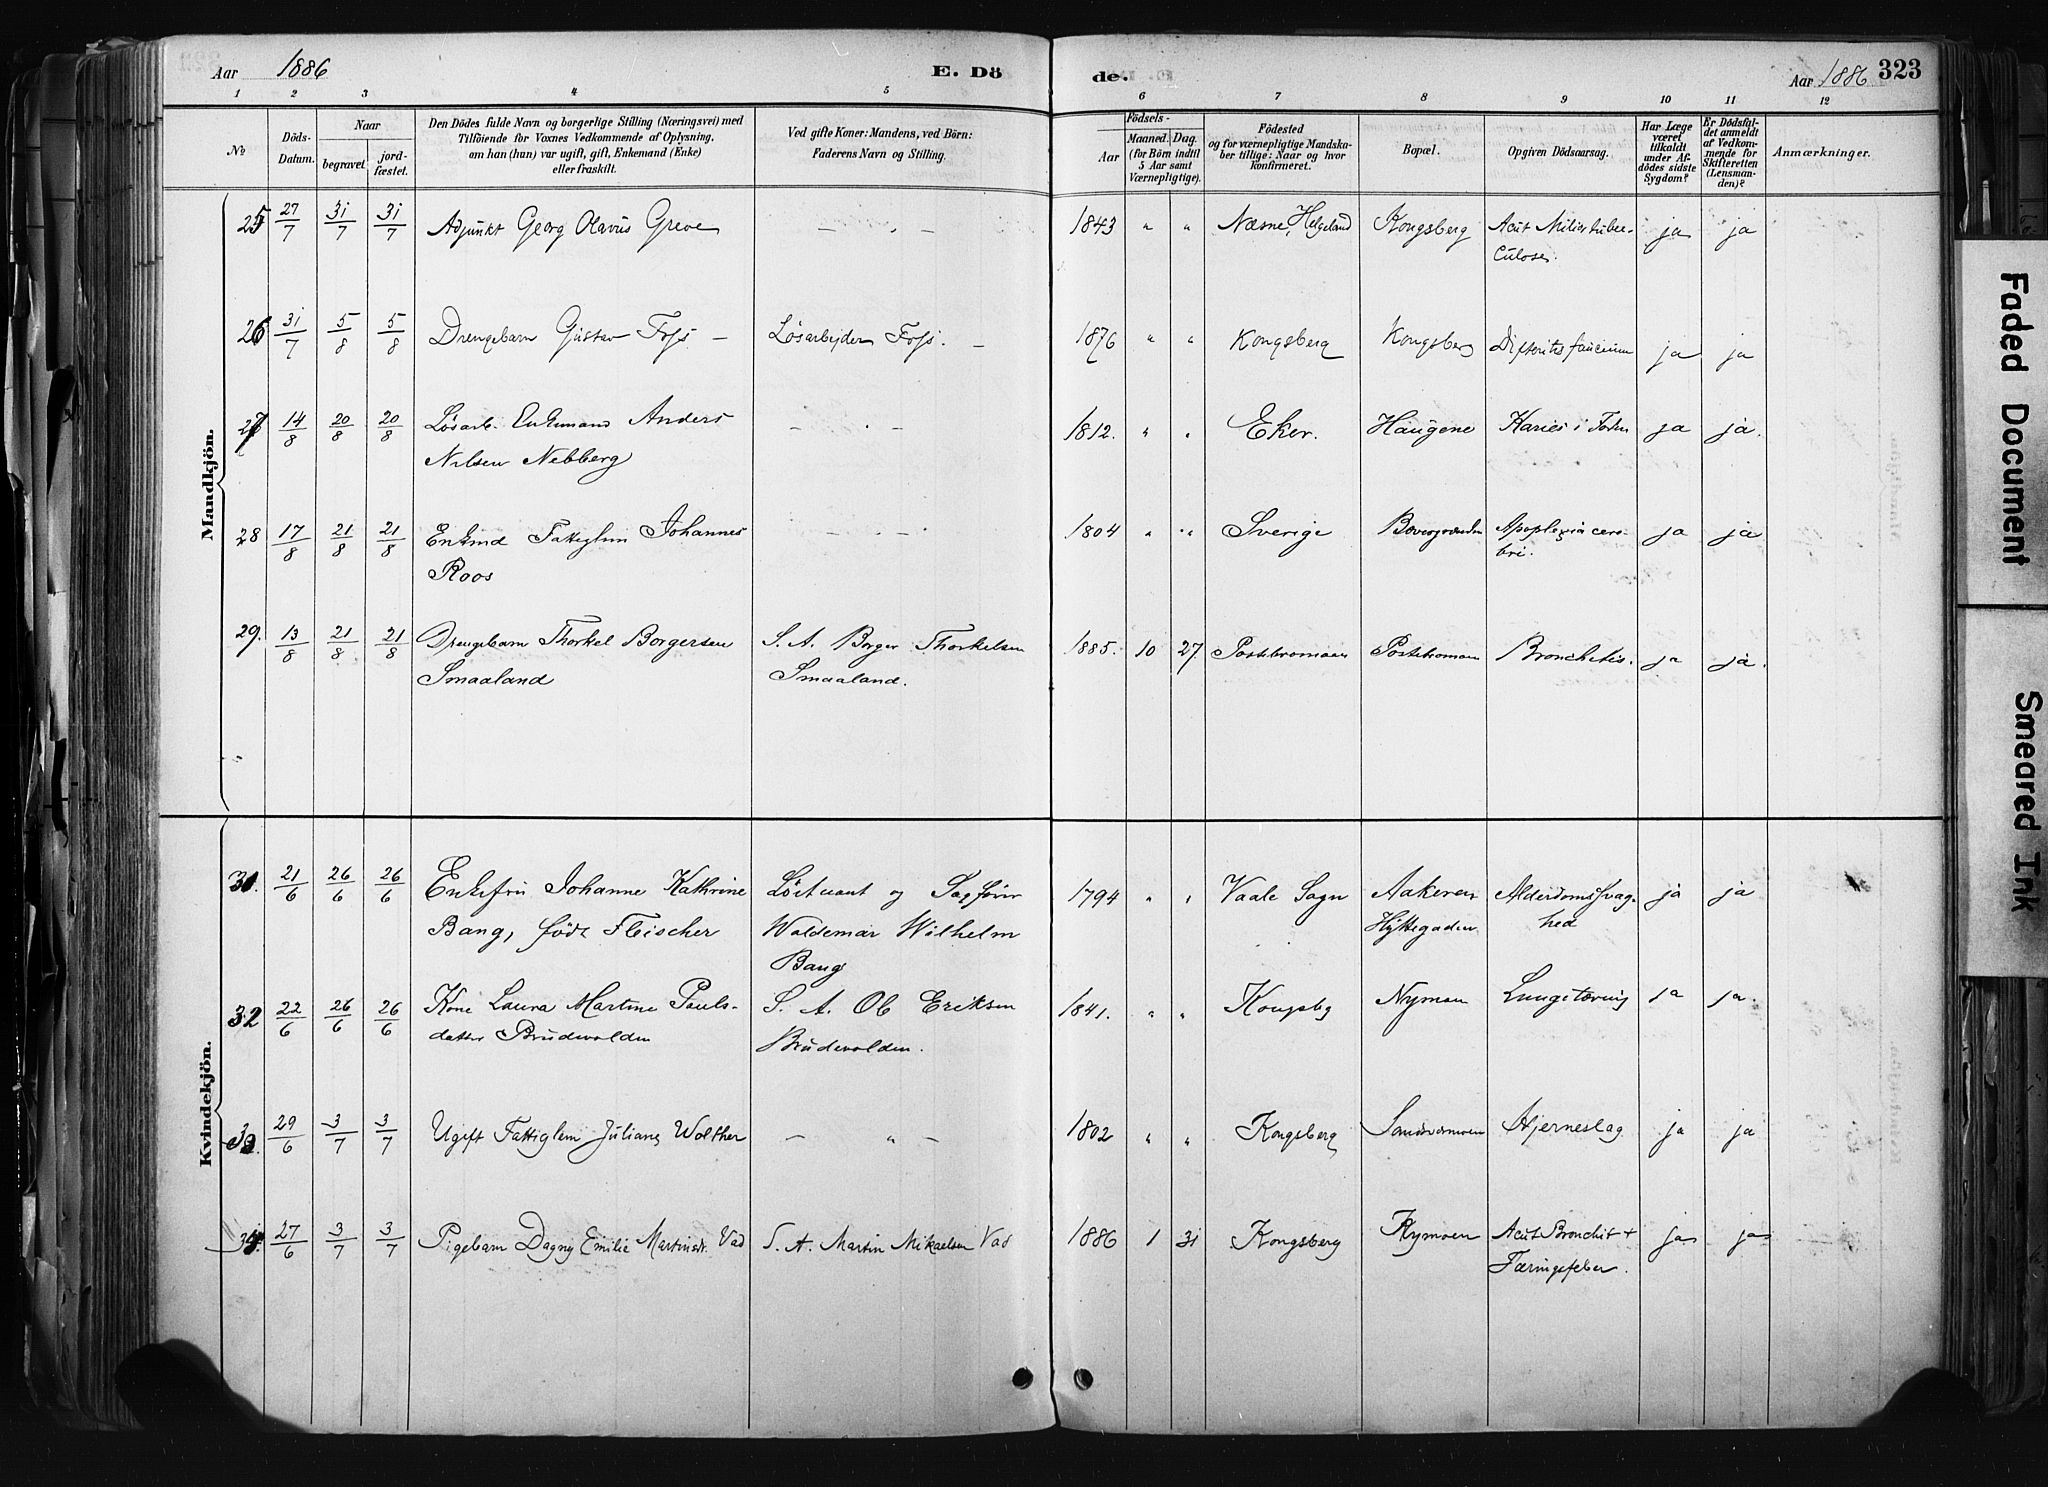 Aar 1886
E. Dö
de.
Aar 1886
323
1 2 3 4 5 6 7 8 9 10 11 12
№
Döds-Datum.
Naar
begravet
jordfæstet.
Den Dödes fulde Navn og borgerlige Stilling (Næringsvei) med
Tilföiende for Voxnes Vedkommende af Oplysning,
om han (hun) var ugift, gift, Enkemand (Enke)
eller fraskilt.
Ved gifte Koner: Mandens, ved Börn:
Faderens Navn og Stilling.
Födsels-
Aar
Maaned. Dag.
(for Börn indtil
5 Aar samt
Værnepligtige).
Födested
og for værnepligtige Mandskaber tillige: Naar og hvor
konfirmeret.
Bopæl.
Opgiven Dödsaarsag.
Har Læge
været
tilkaldt
under Afdödes sidste
Sygdom?
Er Dödsfaldet anmeldt
af Vedkommende for
Skifteretten
(Lensmanden)?
Anmærkninger.
Mandkjön.
25 27/7 31/7 31/7 Adjunkt Georg Olavus Greve — „ — 1843 „ „ Næsne, Helgeland Kongsberg Acut Miliertuber- ja ja
culose.
26 31/7 5/8 5/8 Drengebarn Gustav Foss — Løsarbejder Foss. — 1876 „ „ Kongsberg Kongsberg Difteritis faucium ja ja
27 14/8 20/8 20/8 Løsarb. Enkemand Anders — „ — 1812. „ „ Eker. Haugene Karies i Foden ja ja.
Nilsen Nebberg
28 17/8 21/8 21/8 Enkmd Fattiglem Johannes — „ — 1804 „ „ Sverige Bævergrænden Apoplexia cere- ja ja
Roos bri.
29. 13/8 21/8 21/8 Drengebarn Thorkel Borgersen S. A. Borger Thorkelsen 1885. 10 27 Postebromoen Postebromoen Bronchitis. ja ja.
Smaaland Smaaland.
Kvindekjön.
31. 21/6 26/6 26/6 Enkefru Johanne Kathrine Løitnant og Sagfører 1794 „ „ Vaale Sogn Aakeren Alderdomssvag- ja ja
Bang, født Fleischer Waldemar Wilhelm Hyttegaden hed
Bang
32 22/6 26/6 26/6 Kone Laura Martine Pauls- S. A. Ole Eriksen 1841. „ „ Kongsbg Nymoen Lungetæring ja ja.
datter Brudevolden Brudevolden.
33. 29/6 3/7 3/7 Ugift Fattiglem Juliane Wolther — „ — 1802 „ „ Kongsberg Sandsværmoen Hjerneslag ja ja
34. 27/6 3/7 3/7 Pigebarn Dagny Emilie Martinsdr. Vad S. A. Martin Mikaelsen Vad 1886 1 31 Kongsberg Nymoen Acut Bronchit + ja ja
Tæringsfeber.
Faded Document
Smeared Ink